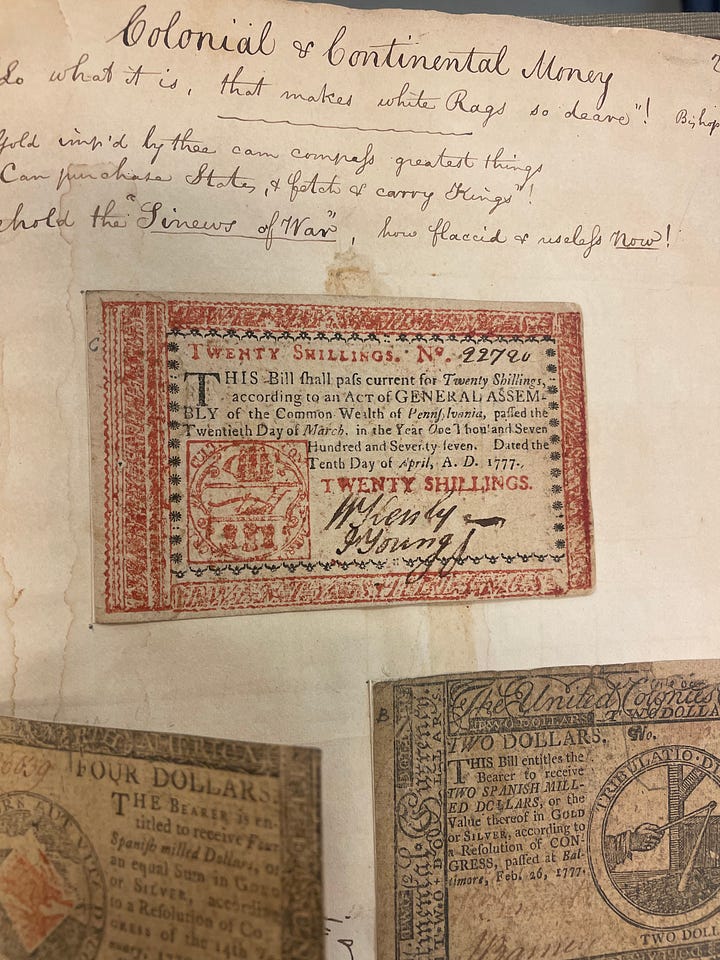 Colonial & Continental Money
Lo what it is, that makes white Rags so deare"! Bishop
Gold imp'd by thee can compass greatest things
Can purchase States, & fetch & carry Kings"!
ehold the "Sinews of War", how flaccid & useless Now!
C
TWENTY SHILLINGS. No. 22720
THIS Bill shall pass current for Twenty Shillings,
according to an ACT of GENERAL ASSEM-
BLY of the Common Wealth of Pennsylvania, passed the
Twentieth Day of March, in the Year One Thousand Seven
Hundred and Seventy-seven. Dated the
Tenth Day of April, A. D. 1777.
TWENTY SHILLINGS.
J Young
TH AMERICA
FOUR DOLLARS.
THE BEARER is en-
titled to receive Four
Spanish milled Dollars, or
an equal Sum in Gold
or SILVER, according
to a Resolution of Co
GRESS of the 14th
B
The United Colonies
TWO DOLLARS. TWO DOLLA
TWO DOLLARS. No.
THIS Bill entitles the
Bearer to receive
TWO SPANISH MILL-
ED DOLLARS, or the
Value thereof in GOLD
or SILVER, according to
a Resolution of CON-
GRESS, passed at Bal-
timore, Feb. 26, 1777.
TRIBULATIO DI
TWO DOLL
Continental Currency.
TWO DOLLARS.